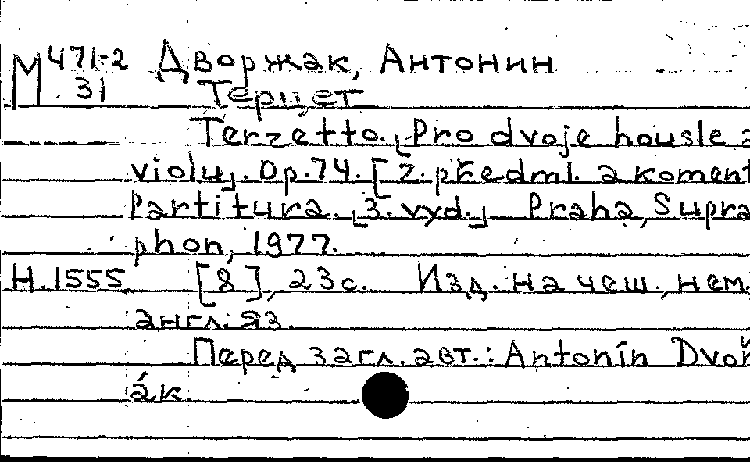 М 471-2 Дворжак, Антонин
31 Терцет
Terzetto. [Pro dvoje housle a
violu]. Op. 74. [Z. předml. a koment
Partitura. [3. vyd.] Praha, Supra
phon, 1977.
Н. 1555 [8], 23 с. Изд. на чеш., нем.
англ. яз.
Перед загл. авт.: Antonín Dvoř
ák.